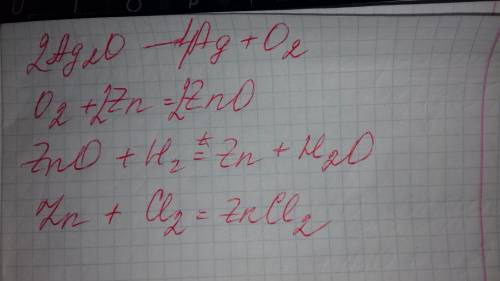 2Ag2O → 4Ag + O2
O2 + 2Zn = 2ZnO
ZnO + H2 =t Zn + H2O
Zn + Cl2 = ZnCl2